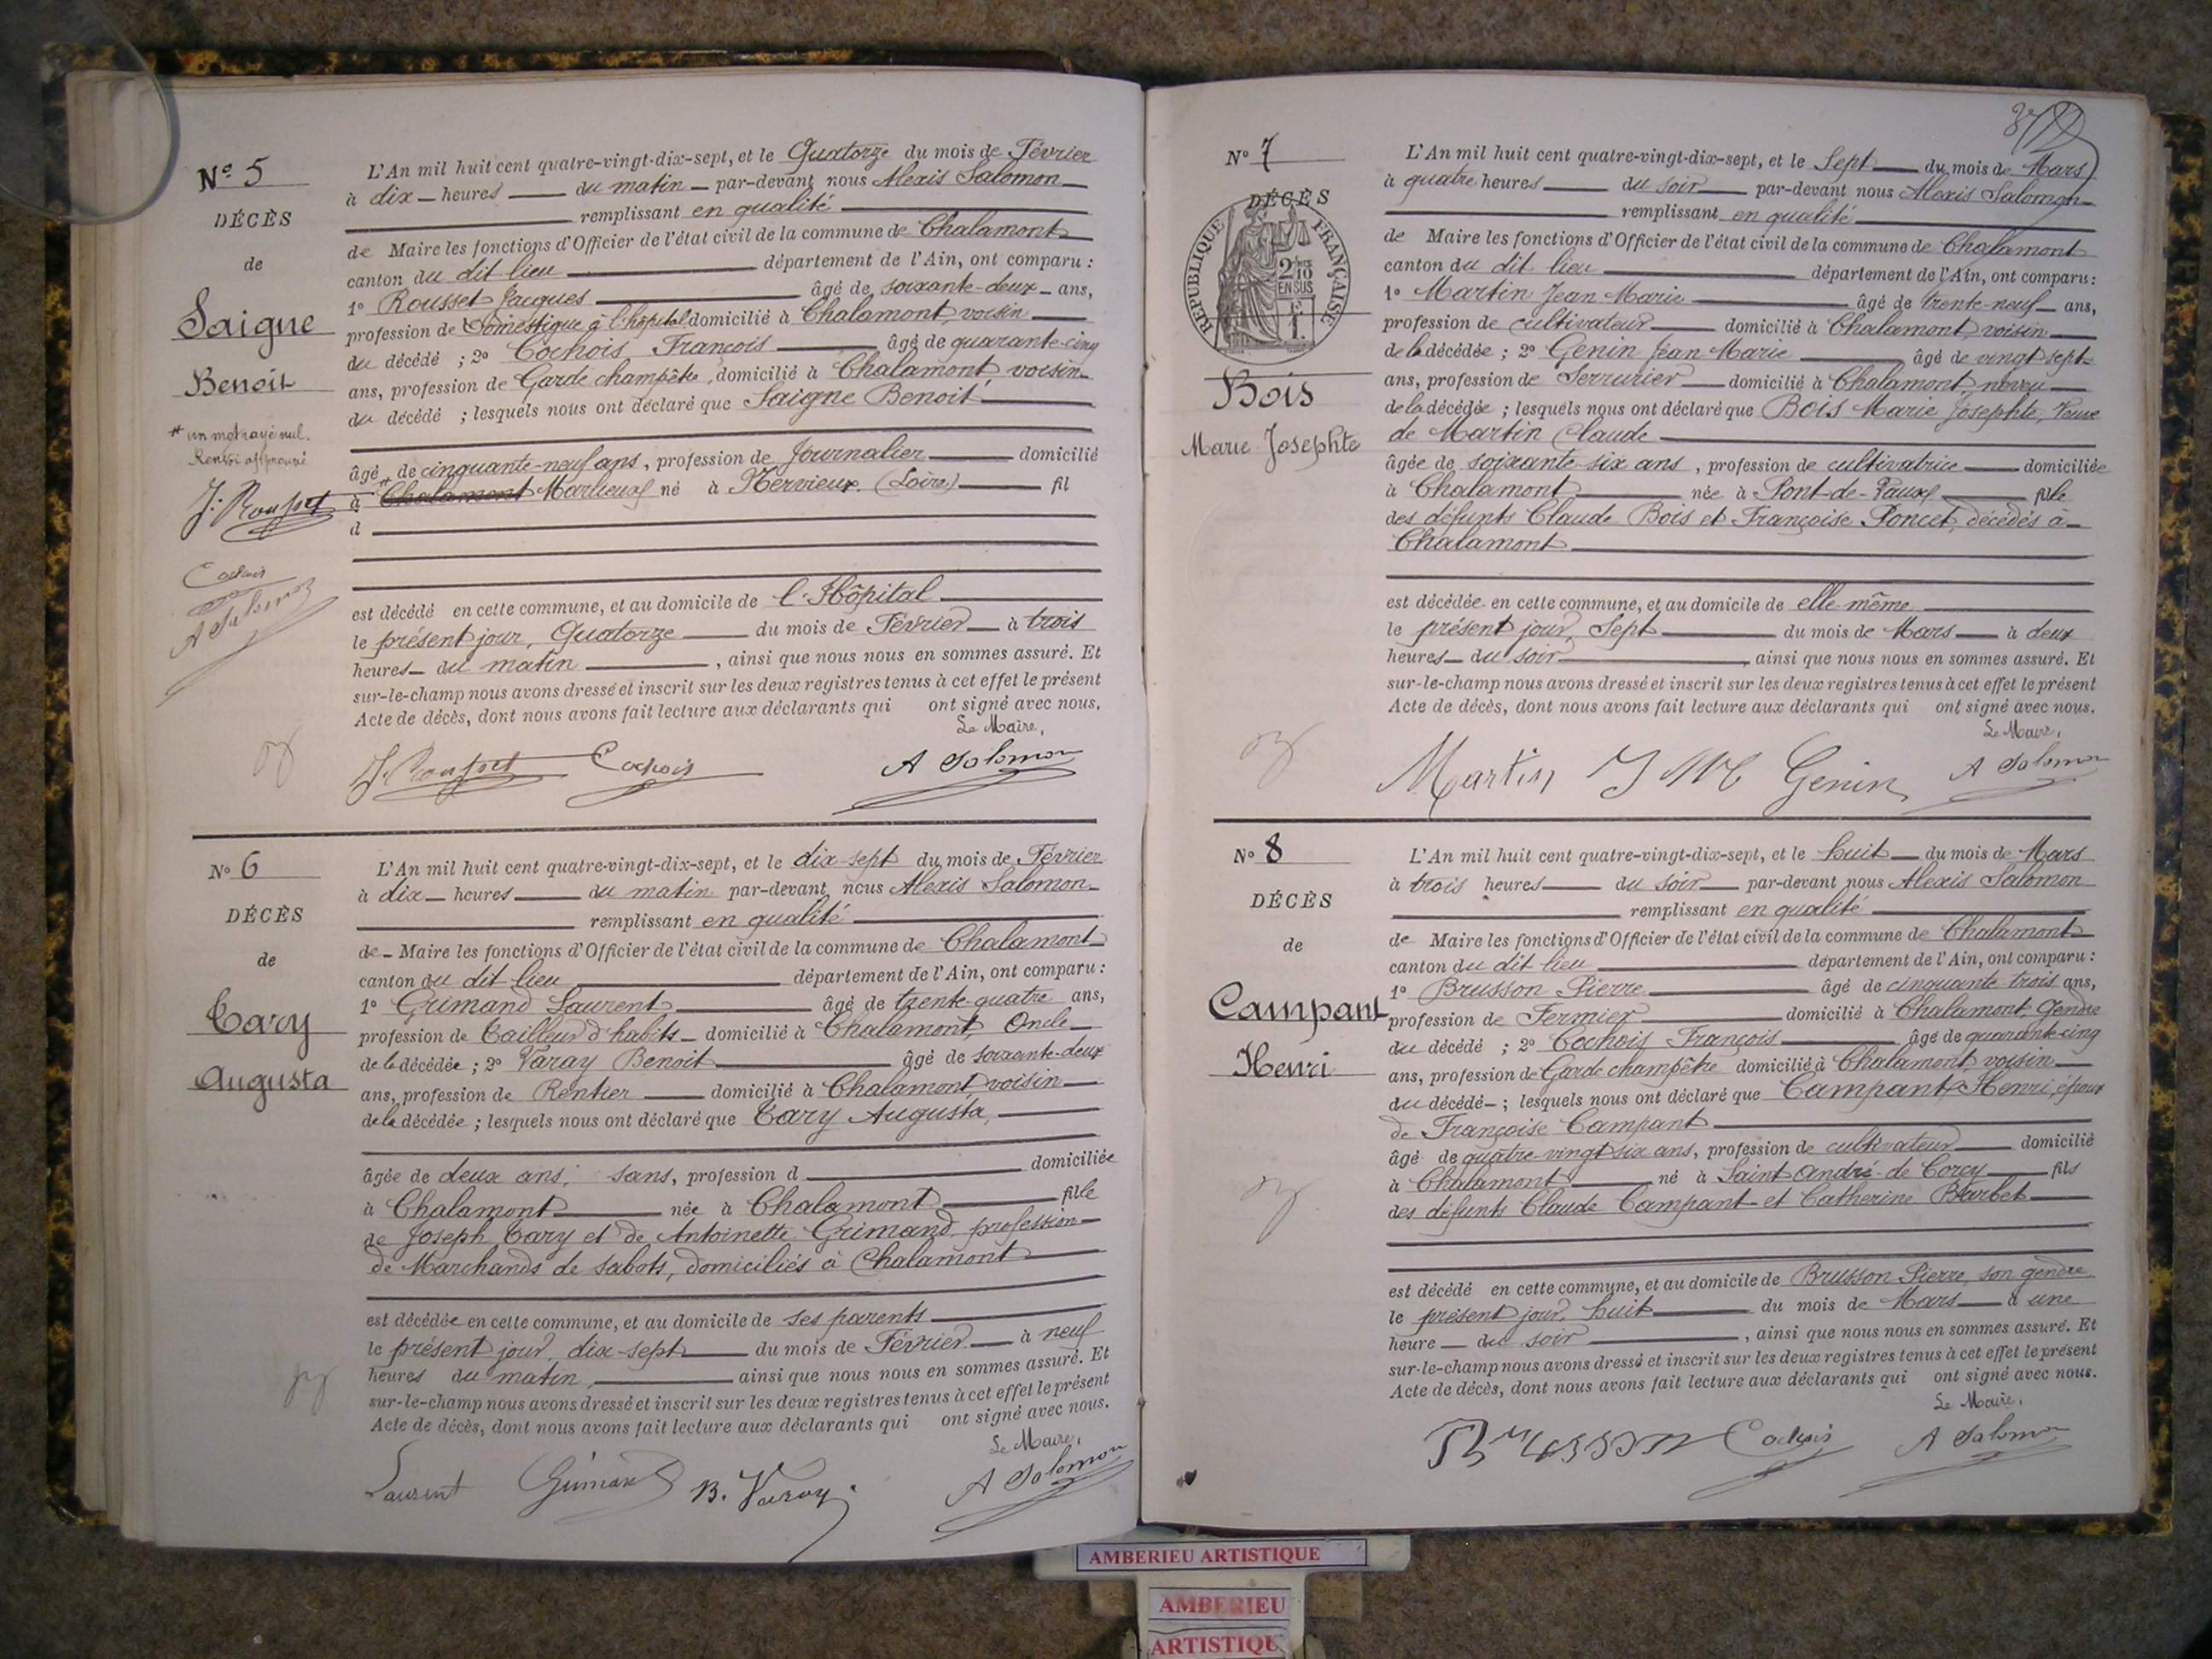 N° 5
DÉCÈS
de
Saigne
Benoit
* un mot rayé nul.
Renvoi approuvé
J. Rousset
Cochois
A Salomon
L'An mil huit cent quatre-vingt-dix-sept, et le Quatorze du mois de Février
à dix heures du matin par-devant nous Alexis Salomon
remplissant en qualité
de Maire les fonctions d'Officier de l'état civil de la commune de Chalamont
canton du dit lieu département de l'Ain, ont comparu :
1° Rousset Jacques âgé de soixante-deux ans,
profession de Domestique à l'hôpital domicilié à Chalamont, voisin
du décédé ; 2° Cochois François âgé de quarante-cinq
ans, profession de Garde champêtre, domicilié à Chalamont voisin
du décédé ; lesquels nous ont déclaré que Saigne Benoit
âgé de cinquante-neuf ans, profession de Journalier domicilié
à * Chalamont Marlieux né à Nervieux (Loire) fil
d
est décédé en cette commune, et au domicile de l'Hôpital
le présent jour, Quatorze du mois de Février à trois
heures du matin, ainsi que nous nous en sommes assuré. Et
sur-le-champ nous avons dressé et inscrit sur les deux registres tenus à cet effet le présent
Acte de décès, dont nous avons fait lecture aux déclarants qui ont signé avec nous.
Le Maire,
J. Rousset Cochois A Salomon
N° 6
DÉCÈS
de
Tary
Augusta
L'An mil huit cent quatre-vingt-dix-sept, et le dix-sept du mois de Février
à dix heures du matin par-devant nous Alexis Salomon
remplissant en qualité
de Maire les fonctions d'Officier de l'état civil de la commune de Chalamont
canton du dit lieu département de l'Ain, ont comparu :
1° Grimand Laurent âgé de trente-quatre ans,
profession de Tailleur d'habits domicilié à Chalamont, Oncle
de la décédée ; 2° Varay Benoit âgé de soixante-deux
ans, profession de Rentier domicilié à Chalamont, voisin
de la décédée ; lesquels nous ont déclaré que Tary Augusta,
âgée de deux ans, sans, profession d domiciliée
à Chalamont née à Chalamont fille
de Joseph Tary et de Antoinette Grimand, profession
de Marchands de sabots, domiciliés à Chalamont
est décédée en cette commune, et au domicile de ses parents
le présent jour, dix-sept du mois de Février à neuf
heures du matin, ainsi que nous nous en sommes assuré. Et
sur-le-champ nous avons dressé et inscrit sur les deux registres tenus à cet effet le présent
Acte de décès, dont nous avons fait lecture aux déclarants qui ont signé avec nous.
Le Maire,
Laurent Grimand B. Varay A Salomon
N° 7
DÉCÈS
RÉPUBLIQUE FRANÇAISE
2/10 EN SUS
Bois
Marie Josephte
L'An mil huit cent quatre-vingt-dix-sept, et le Sept du mois de Mars
à quatre heures du soir par-devant nous Alexis Salomon
remplissant en qualité
de Maire les fonctions d'Officier de l'état civil de la commune de Chalamont
canton du dit lieu département de l'Ain, ont comparu :
1° Martin Jean Marie âgé de trente-neuf ans,
profession de cultivateur domicilié à Chalamont, voisin
de la décédée ; 2° Genin Jean Marie âgé de vingt sept
ans, profession de Serrurier domicilié à Chalamont, neveu
de la décédée ; lesquels nous ont déclaré que Bois Marie Josephte, Veuve
de Martin Claude
âgée de soixante-six ans, profession de cultivatrice domiciliée
à Chalamont née à Pont-de-Vaux fille
des défunts Claude Bois et Françoise Poncet, décédés à
Chalamont
est décédée en cette commune, et au domicile de elle même
le présent jour, Sept du mois de Mars à deux
heures du soir, ainsi que nous nous en sommes assuré. Et
sur-le-champ nous avons dressé et inscrit sur les deux registres tenus à cet effet le présent
Acte de décès, dont nous avons fait lecture aux déclarants qui ont signé avec nous.
Le Maire,
Martin J M Genin A Salomon
N° 8
DÉCÈS
de
Campant
Henri
L'An mil huit cent quatre-vingt-dix-sept, et le huit du mois de Mars
à trois heures du soir par-devant nous Alexis Salomon
remplissant en qualité
de Maire les fonctions d'Officier de l'état civil de la commune de Chalamont
canton du dit lieu département de l'Ain, ont comparu :
1° Brusson Pierre âgé de cinquante trois ans,
profession de Fermier domicilié à Chalamont, Gendre
du décédé ; 2° Cochois François âgé de quarante-cinq
ans, profession de Garde champêtre domicilié à Chalamont voisin
du décédé ; lesquels nous ont déclaré que Campant Henri, époux
de Françoise Campant
âgé de quatre-vingt six ans, profession de cultivateur domicilié
à Chalamont né à Saint André-de Corcy fils
des défunts Claude Campant et Catherine Barbet
est décédé en cette commune, et au domicile de Brusson Pierre, son gendre
le présent jour, huit du mois de Mars à une
heure du soir, ainsi que nous nous en sommes assuré. Et
sur-le-champ nous avons dressé et inscrit sur les deux registres tenus à cet effet le présent
Acte de décès, dont nous avons fait lecture aux déclarants qui ont signé avec nous.
Le Maire,
Brusson Cochois A Salomon
AMBERIEU ARTISTIQUE
AMBERIEU
ARTISTIQUE